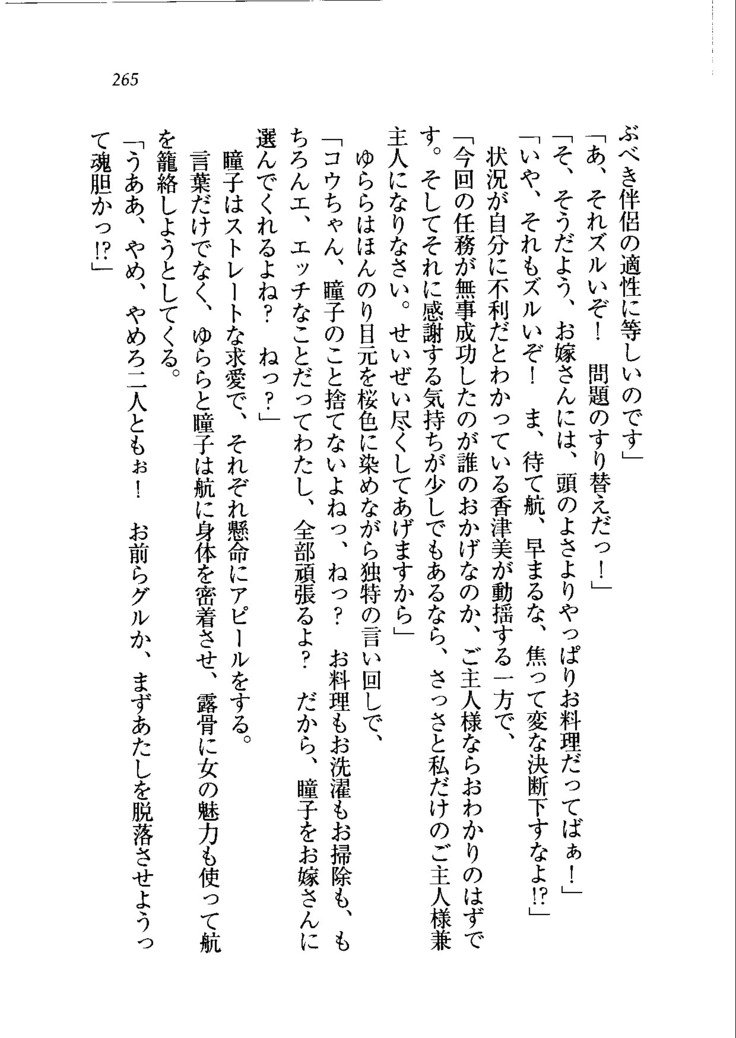 265
ぶべき伴侶の適性に等しいのです」
「あ、それズルいぞ！　問題のすり替えだっ！」
「そ、そうだよう、お嫁さんには、頭のよさよりやっぱりお料理だってばぁ！」
「いや、それもズルいぞ！　ま、待て航、早まるな、焦って変な決断下すなよ!?」
状況が自分に不利だとわかっている香津美が動揺する一方で、
「今回の任務が無事成功したのが誰のおかげなのか、ご主人様ならおわかりのはずで
す。そしてそれに感謝する気持ちが少しでもあるなら、さっさと私だけのご主人様兼
主人になりなさい。せいぜい尽くしてあげますから」
ゆららはほんのり目元を桜色に染めながら独特の言い回しで、
「コウちゃん、瞳子のこと捨てないよねっ、ねっ？　お料理もお洗濯もお掃除も、も
ちろんエ、エッチなことだってわたし、全部頑張るよ？　だから、瞳子をお嫁さんに
選んでくれるよね？　ねっ？」
瞳子はストレートな求愛で、それぞれ懸命にアピールをする。
言葉だけでなく、ゆららと瞳子は航に身体を密着させ、露骨に女の魅力も使って航
を籠絡しようとしてくる。
「うああ、やめ、やめろ二人ともぉ！　お前らグルか、まずあたしを脱落させようっ
て魂胆かっ!?」